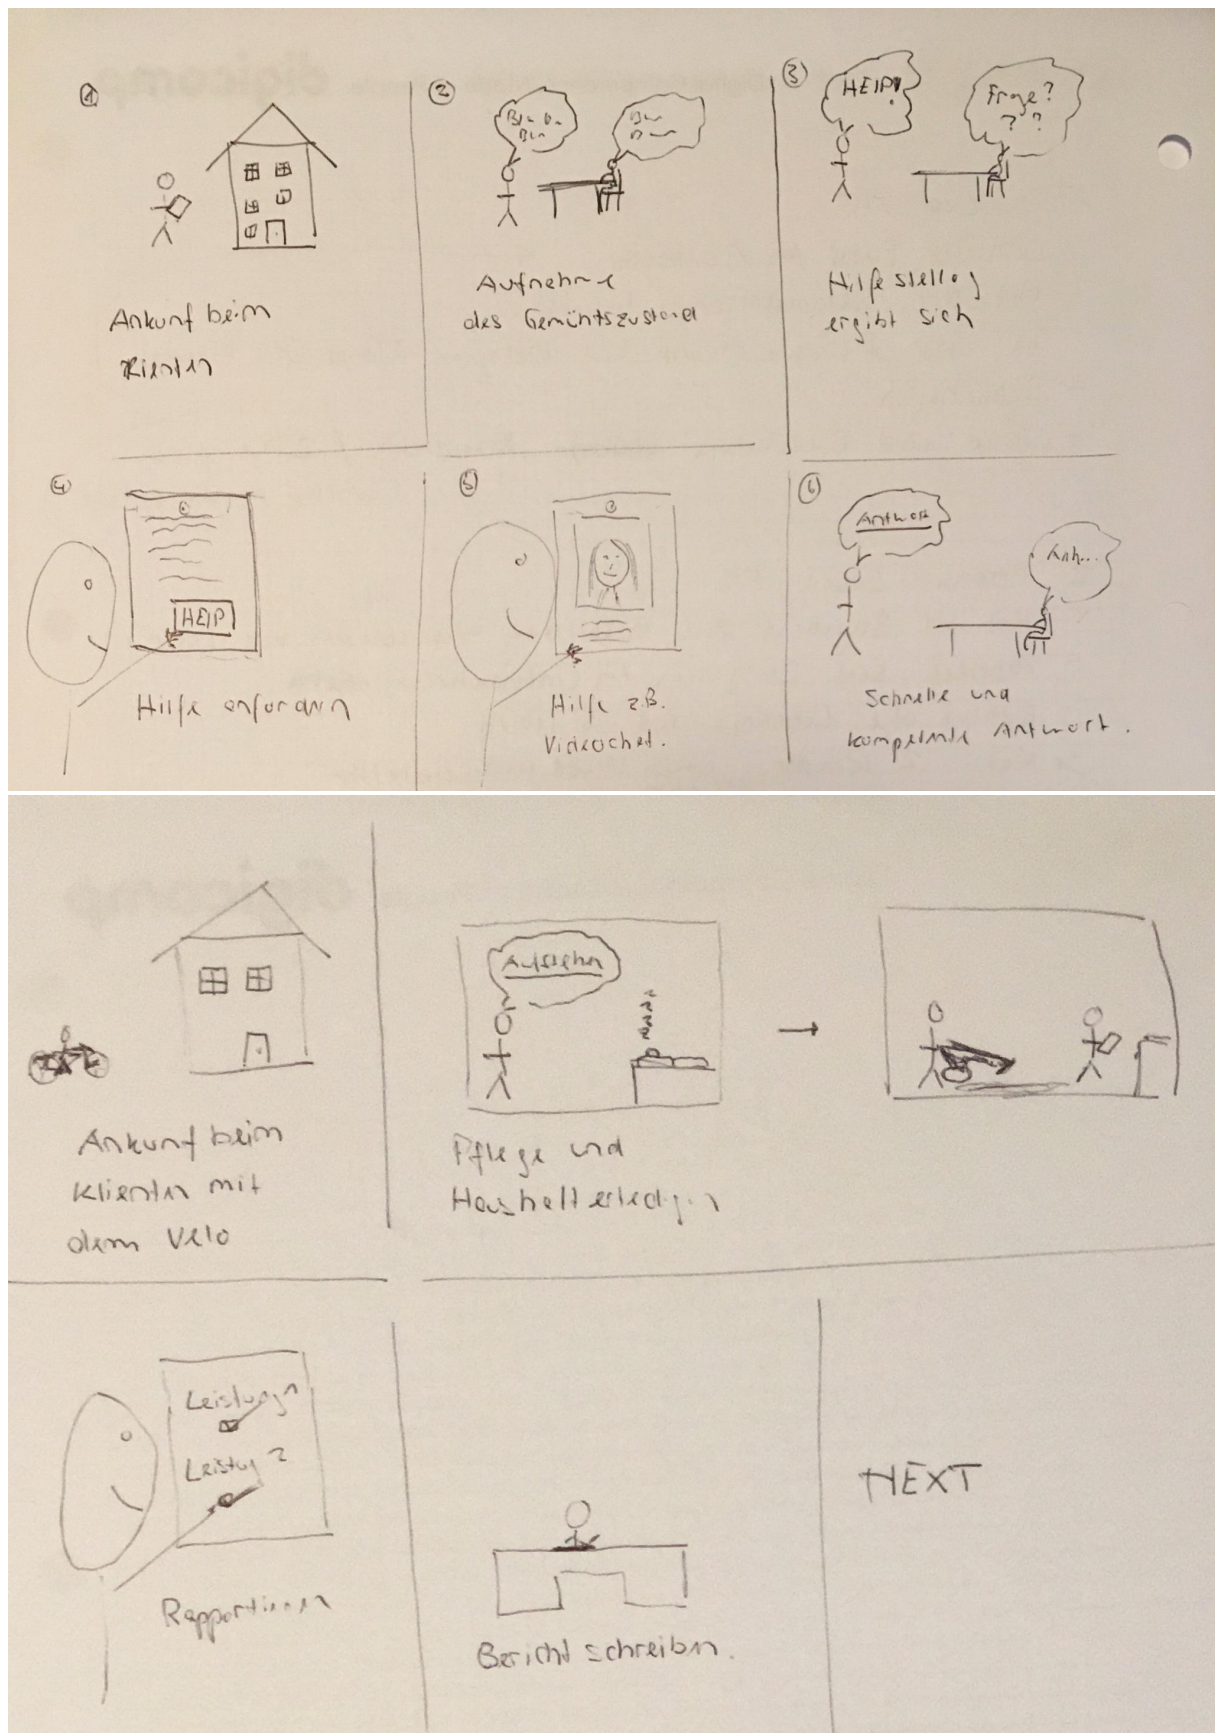 ①
Ankunf beim
Klienten
②
Bla Bla
Bla
Bla
Aufnehme
des Gemühtszustand
③
HELP!
Frage?
? ?
Hilfestellug
ergibt sich
④
HELP
Hilfe anfordern
⑤
Hilfe z.B.
Videochat.
⑥
Antwort
Aah...
Schnelle und
kompetente Antwort.
digicomp
Ankunf beim
Klienten mit
dem Velo
Aufstehen
→
Pflege und
Haushalt erledigen
Leistung 1
Leistug 2
Rapportieren
Bericht schreiben.
NEXT